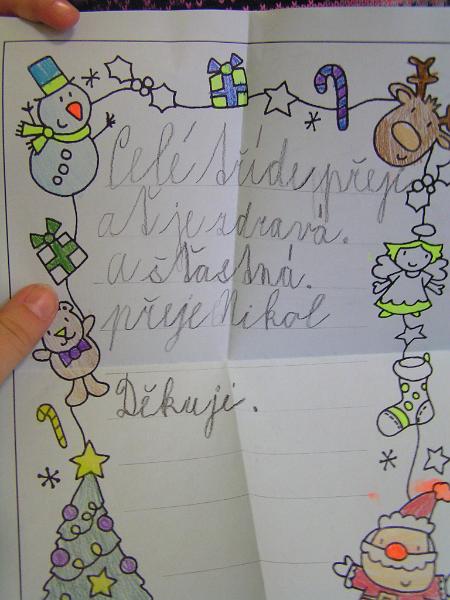 Celé třídě přeji
ať je zdravá.
a šťastná.
přeje Nikol
Děkuji.